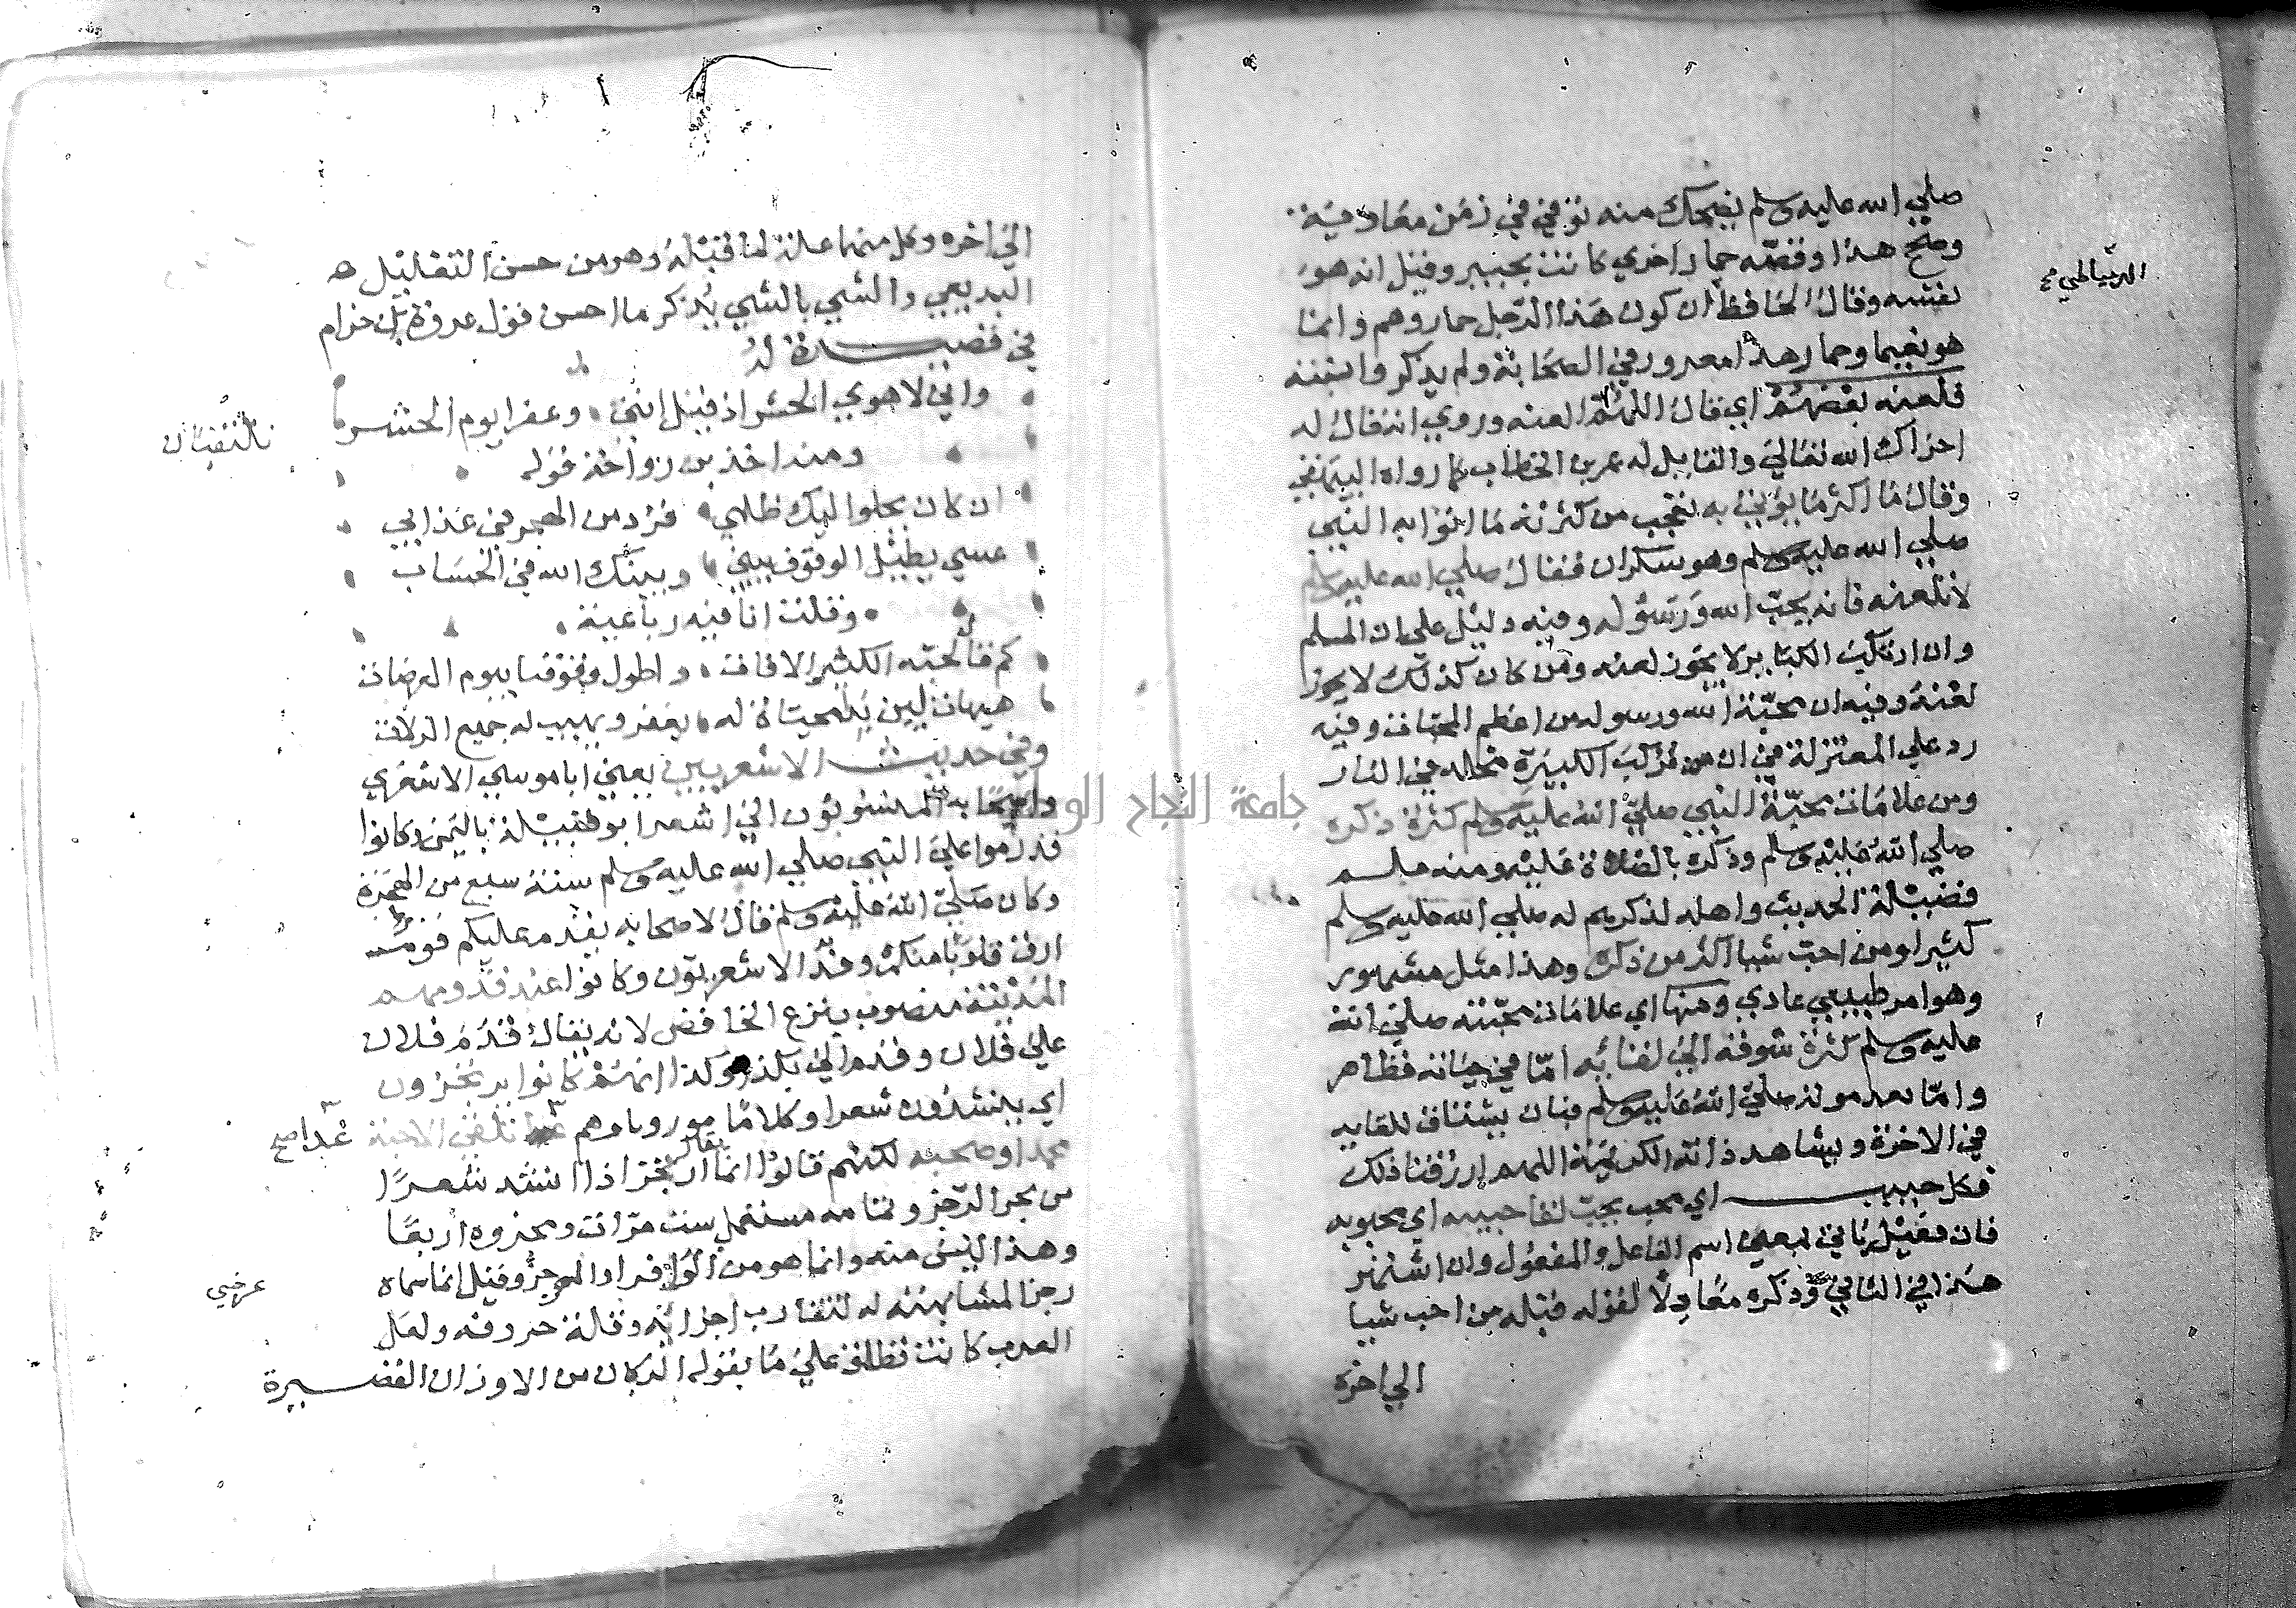 صلي الله عليه وسلم يضحك منه توفي في زمن معاوية
وصح هذا وقصة حمار اخري كانت بخيبر وقيل انه هو
نفسه وقال الحافظ ان كون هذا الرجل حمار وهم وانما
الدمياطي
هو نعيما وحمار هذا معدود في الصحابة ولم يذكروا
فلعنه بعضهم اي قال اللهم العنه وروي انه قال له
اخزاك الله تعالي والقايل له عمر بن الخطاب كما رواه البيهقي
وقال ما اكثر ما يؤتي به تعجب من كثرة ما اتوا به النبي
صلي الله عليه وسلم وهو سكران فقال صلي الله عليه وسلم
لا تلعنه فانه يحب الله ورسوله وفيه دليل علي ان المسلم
وان ارتكب الكباير لا يجوز لعنه ومن كان كذلك لا يجوز
لعنه وفيه ان محبة الله ورسوله من اعظم وفيه
رد علي المعتزلة في ان من ارتكب الكبيرة مخلد في النار
ومن علامات محبة النبي صلي الله عليه وسلم كثرة ذكره
صلي الله عليه وسلم وذكره بالصلاة عليه ومنه علم
فضيلة الحديث واهله لذكرهم له صلي الله عليه وسلم
كثيرا ومن احب شيا اكثر من ذكره وهذا مثل مشهور
وهو امر طبيعي عادي ومنها اي علامات محبته صلي الله
عليه وسلم كثرة شوقه الي لقائه اما في حياته فظاهر
واما بعد موته صلي الله عليه وسلم فبان يشتاق للقايه
في الاخرة ويشاهد ذاته الكريمة اللهم ارزقنا ذلك
فكل حبيب اي محب يحب لقا حبيبه اي محبوبه
فان فعيل ياتي بمعني اسم الفاعل والمفعول وان اشتهر
هذا في الثاني وذكره لقوله قبله من احب شيا
الي اخره
الي اخره وكل منهما علة لما قبله وهو من حسن التعليل
البديعي والشي بالشي يذكر ما احسن قول عروة بن حزام
في قصيدة له
واني لاهوي الحشر اذ قيل انني وعفرا يوم الحشر
نلتقيان
ومنه اخذ بن رواحة قوله
ان كان يحلو اليك ظلمي فزد من الهجر في عذابي
عسي يطيل الوقوف بيني وبينك الله في الحساب
وقلت انا فيه رباعية
كم قال لحبه الكثير الافات واطول وقوفنا بيوم العرضات
هيهات لمن له يغفر ويهب له جميع الزلات
وفي حديث الاشعريين يعني ابا موسي الاشعري
واصحابه المنسوبون الي اشعر ابو قبيلة باليمن وكانوا
قدموا علي النبي صلي الله عليه وسلم سنة سبع من الهجرة
وكان صلي الله عليه وسلم قال لاصحابه يقدم عليكم قوم
ارق قلوبا منكم وقدم الاشعريون وكانوا عند قدومهم
المدينة منصوب بنزع الخافض لانه يقال قدم فلان
علي فلان وقدم الي بلد كذا انهم كانوا يرتجزون
اي ينشدون شعرا وكلاما موزونا وهم غدا نلقي الاحبة
غدا صح
محمدا وصحبه لكنهم قالوا انما يقال ارتجز اذا انشد شعرا
من بحر الرجز وتمامه مستفعلن ست مرات ومجزوه اربعا
وهذا ليس منه وانما هو من الوافر او الهزج وقيل انما سماه
عرضي
رجزا لمشابهته له لتقارب اجزائه وقلة حروفه ولعل
العرب كانت تطلق علي ما يقوله الركبان من الاوزان القصيرة
جامعة النجاح الوطنية